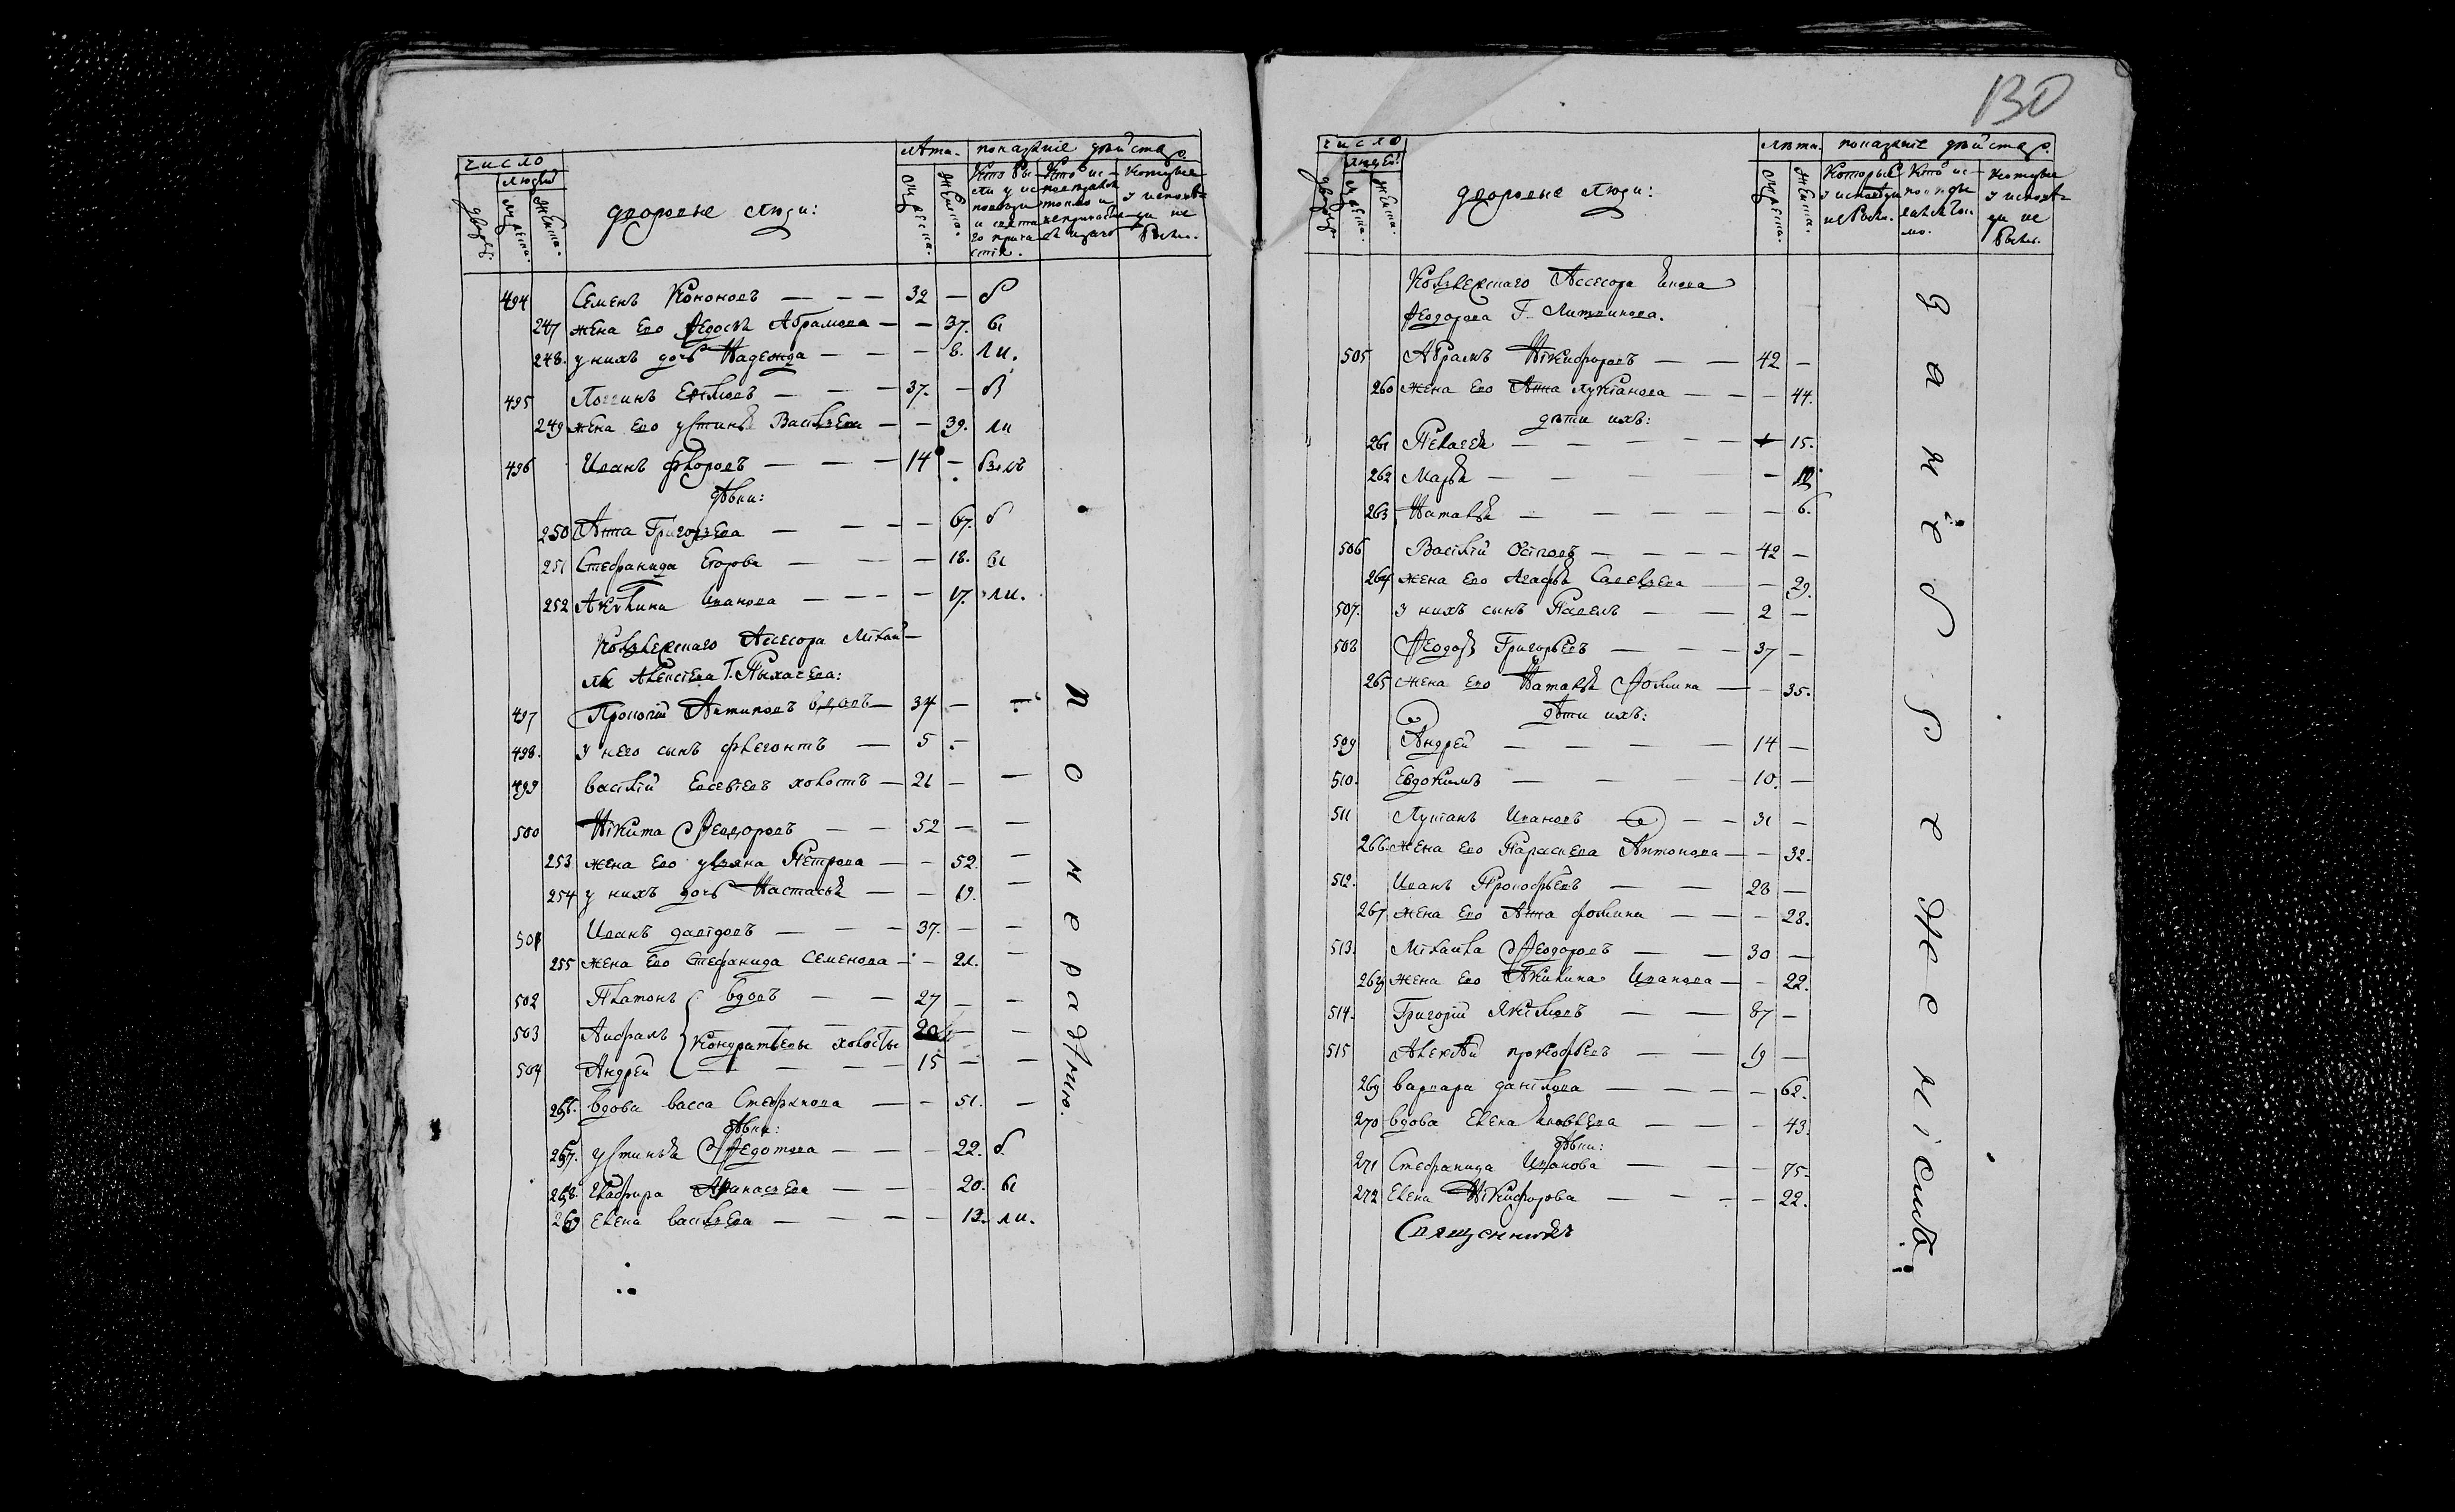 130
число
людей
дворовъ.
мужеска.
женска.
дворовые люди:
лѣта.
мужеска.
женска.
показаніе дѣйства.
Кто бы
ли у ис
повѣди
и свята
го прича
стія.
Кто ис
повѣдался
токмо и
не причастил
Которые
у исповѣ
ди не
были.
494 Семенъ Кононовъ — — — 32 — б
247 жена его Ѳедосья Абрамова — — 37. ы
248. у нихъ дочь Надежда — — — 8. ли.
495 Логгинъ — — 37. — б
249 жена его Устинья Васильева — — 39. ли
496 Иванъ Флоровъ — — — 14 — былъ
дѣвки:
250 Анна Григорьева — — — — 67. б
251 Стефанида Егорова — — — 18. ы
252 Акулина Иванова — — — — 17. ли.
Коллежскаго Ассесора Михаи—
ла Алексѣева Г. Лыхачева:
497 Прокопій Антиповъ вдовъ — 34 — —
498. у него сынъ Флегонтъ — 5 —
499 Василій Евсевіевъ холостъ — 21 — —
500 Никита Ѳеодоровъ — — 52 — —
253 жена его Ульяна Петрова — — 52. —
254 у нихъ дочь Настасья — — 19. —
501 Иванъ Давидовъ — — — 37. — —
255 жена его Стефанида Семенова — — 21. —
502 Платонъ вдовъ — — 27 — —
503 Кондратьевы холосты 20 — —
504 Андрей — — — — 15 — —
256. вдова Васса Стефанова — — 51. —
дѣвки:
257. Устинья Ѳедотова — — — 22. б
258. Глафира Афанасьева — — — 20. ы
259 Елена Васильева — — — — 13. ли.
по нерадѣнію.
число
людей
дворовъ.
мужеска.
женска.
дворовые люди:
лѣта.
мужеска.
женска.
показаніе дѣйства.
Которые
у исповѣди
не были.
Кто ис
повѣда
лся ток
мо.
Которые
у исповѣ
ди не
были.
Коллежскаго Ассесора Якова
Ѳеодорова Г. Литвинова.
505 Абрамъ Никифоровъ — — 42 —
260 жена его Анна Лукіанова — — — 44.
дѣти ихъ:
261 Пелагея — — — — — 15.
262 Марья — — — —
263 Наталья — — — — — 6.
506 Василій Осиповъ — — — — 42 —
264 жена его Агафья Савельева — — 29.
507. у нихъ сынъ Павелъ — — 2 —
508 Ѳеодоръ Григорьевъ — — — 37 —
265 жена его Наталья Фомина — — 35.
дѣти ихъ:
509 Андрей — — — — 14 —
510. Евдокимъ — — — 10. —
511 Лукіанъ Ивановъ — — 31 —
266. жена его Параскева Антонова — — 32.
512. Иванъ Прокофьевъ — — 28 —
267 жена его Анна Фомина — — — 28.
513. Михайла Ѳеодоровъ — — 30 —
268 жена его Акилина Иванова — — 22.
514. Григорій Якимовъ — — 87 —
515 Алексѣй Прокофьевъ — — 19 —
269 Варвара Данилова — — — — 62.
270 вдова Елена Яковлева — — — 43.
дѣвки:
271 Стефанида Иванова — — — 75.
272 Елена Никифорова — — — — 22.
Священникъ
за небреженіемъ.